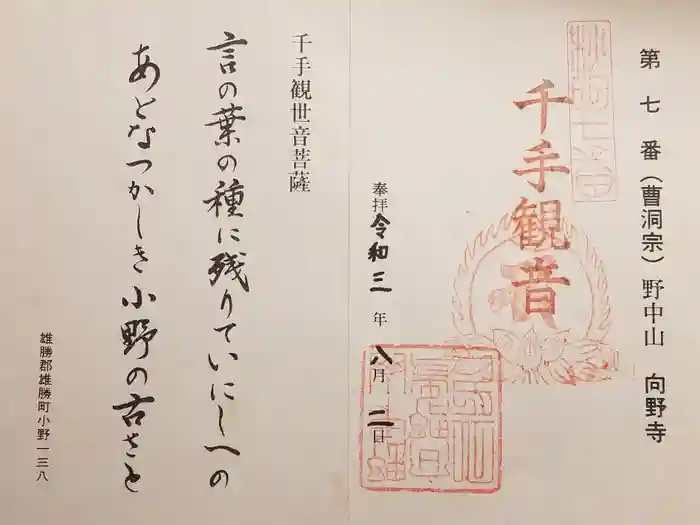 第七番(曹洞宗)野中山 向野寺
千手観音
奉拝 令和三年 八月 二日
千手観世音菩薩
言の葉の種に残りていにしへの
あとなつかしき小野の古さと
雄勝郡雄勝町小野一三八